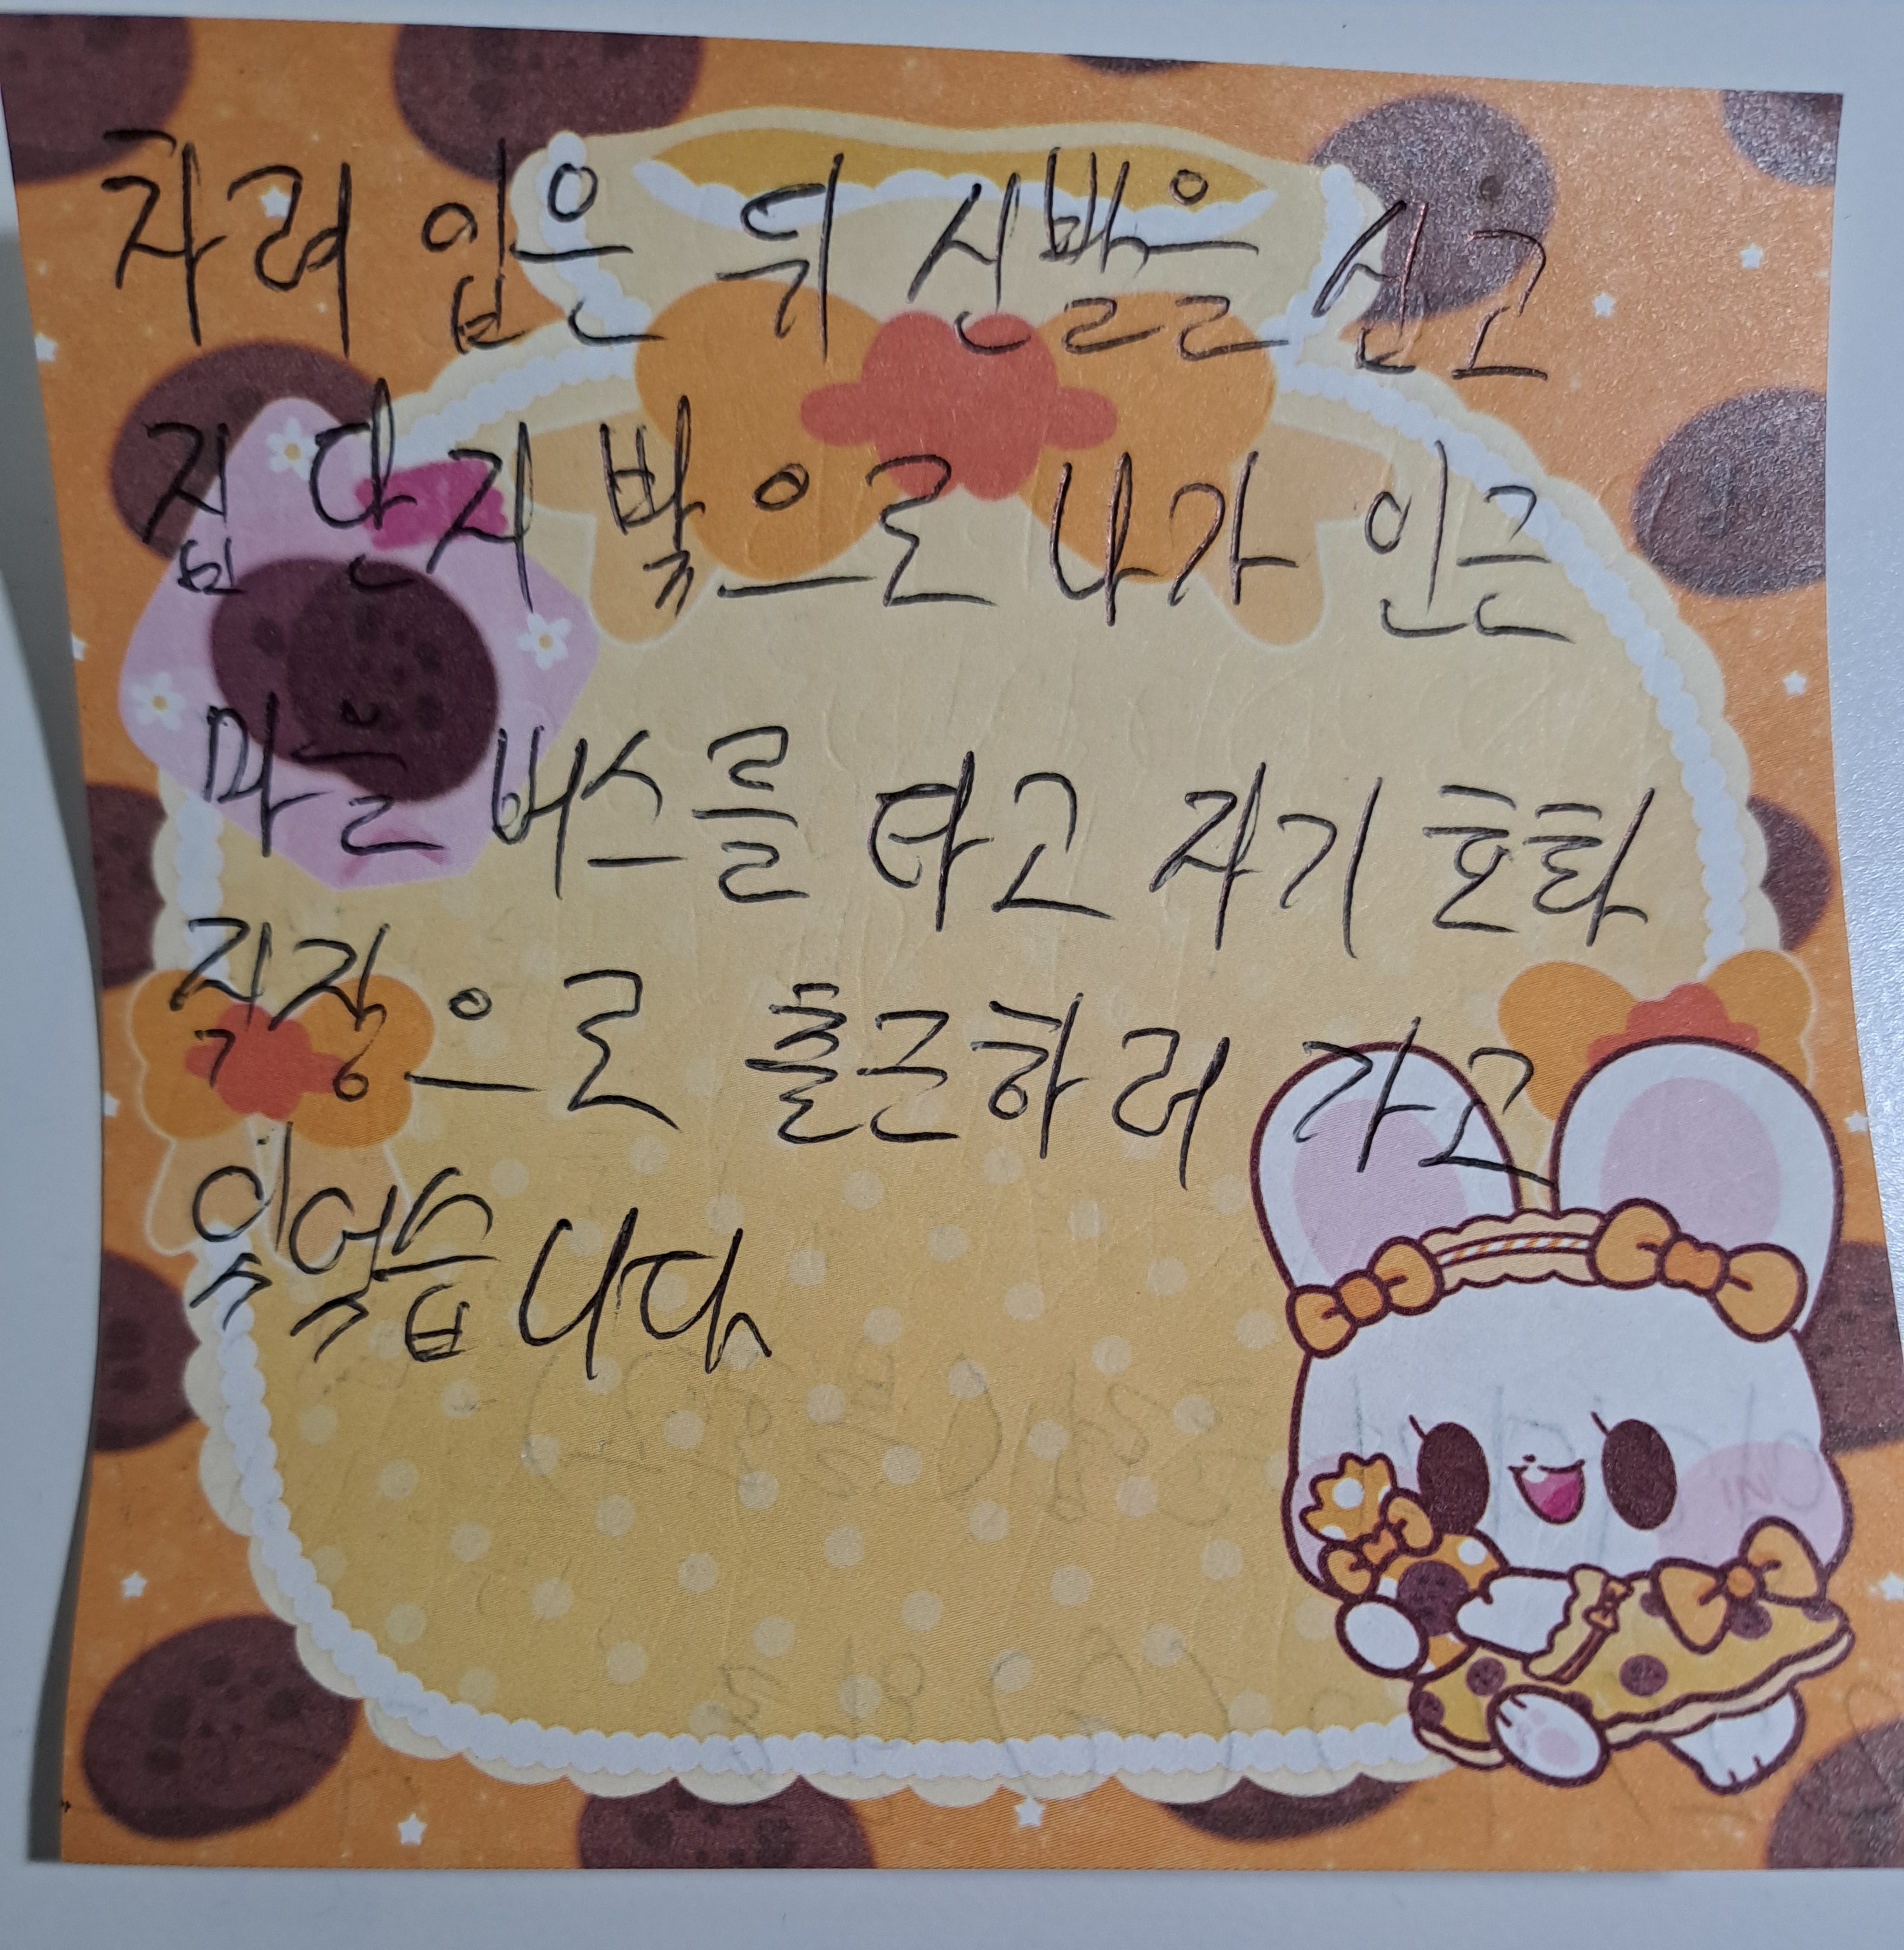 차려 입은 뒤 신발을 신고
집 단지 밖으로 나가 인근
마을 버스를 타고 자기 혼화
직장으로 출근하러 가고
있었습니다